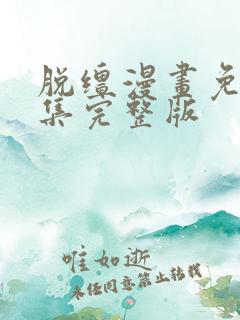 脱缰漫畫免
集完整版
唯如逝
未经同意禁止转载